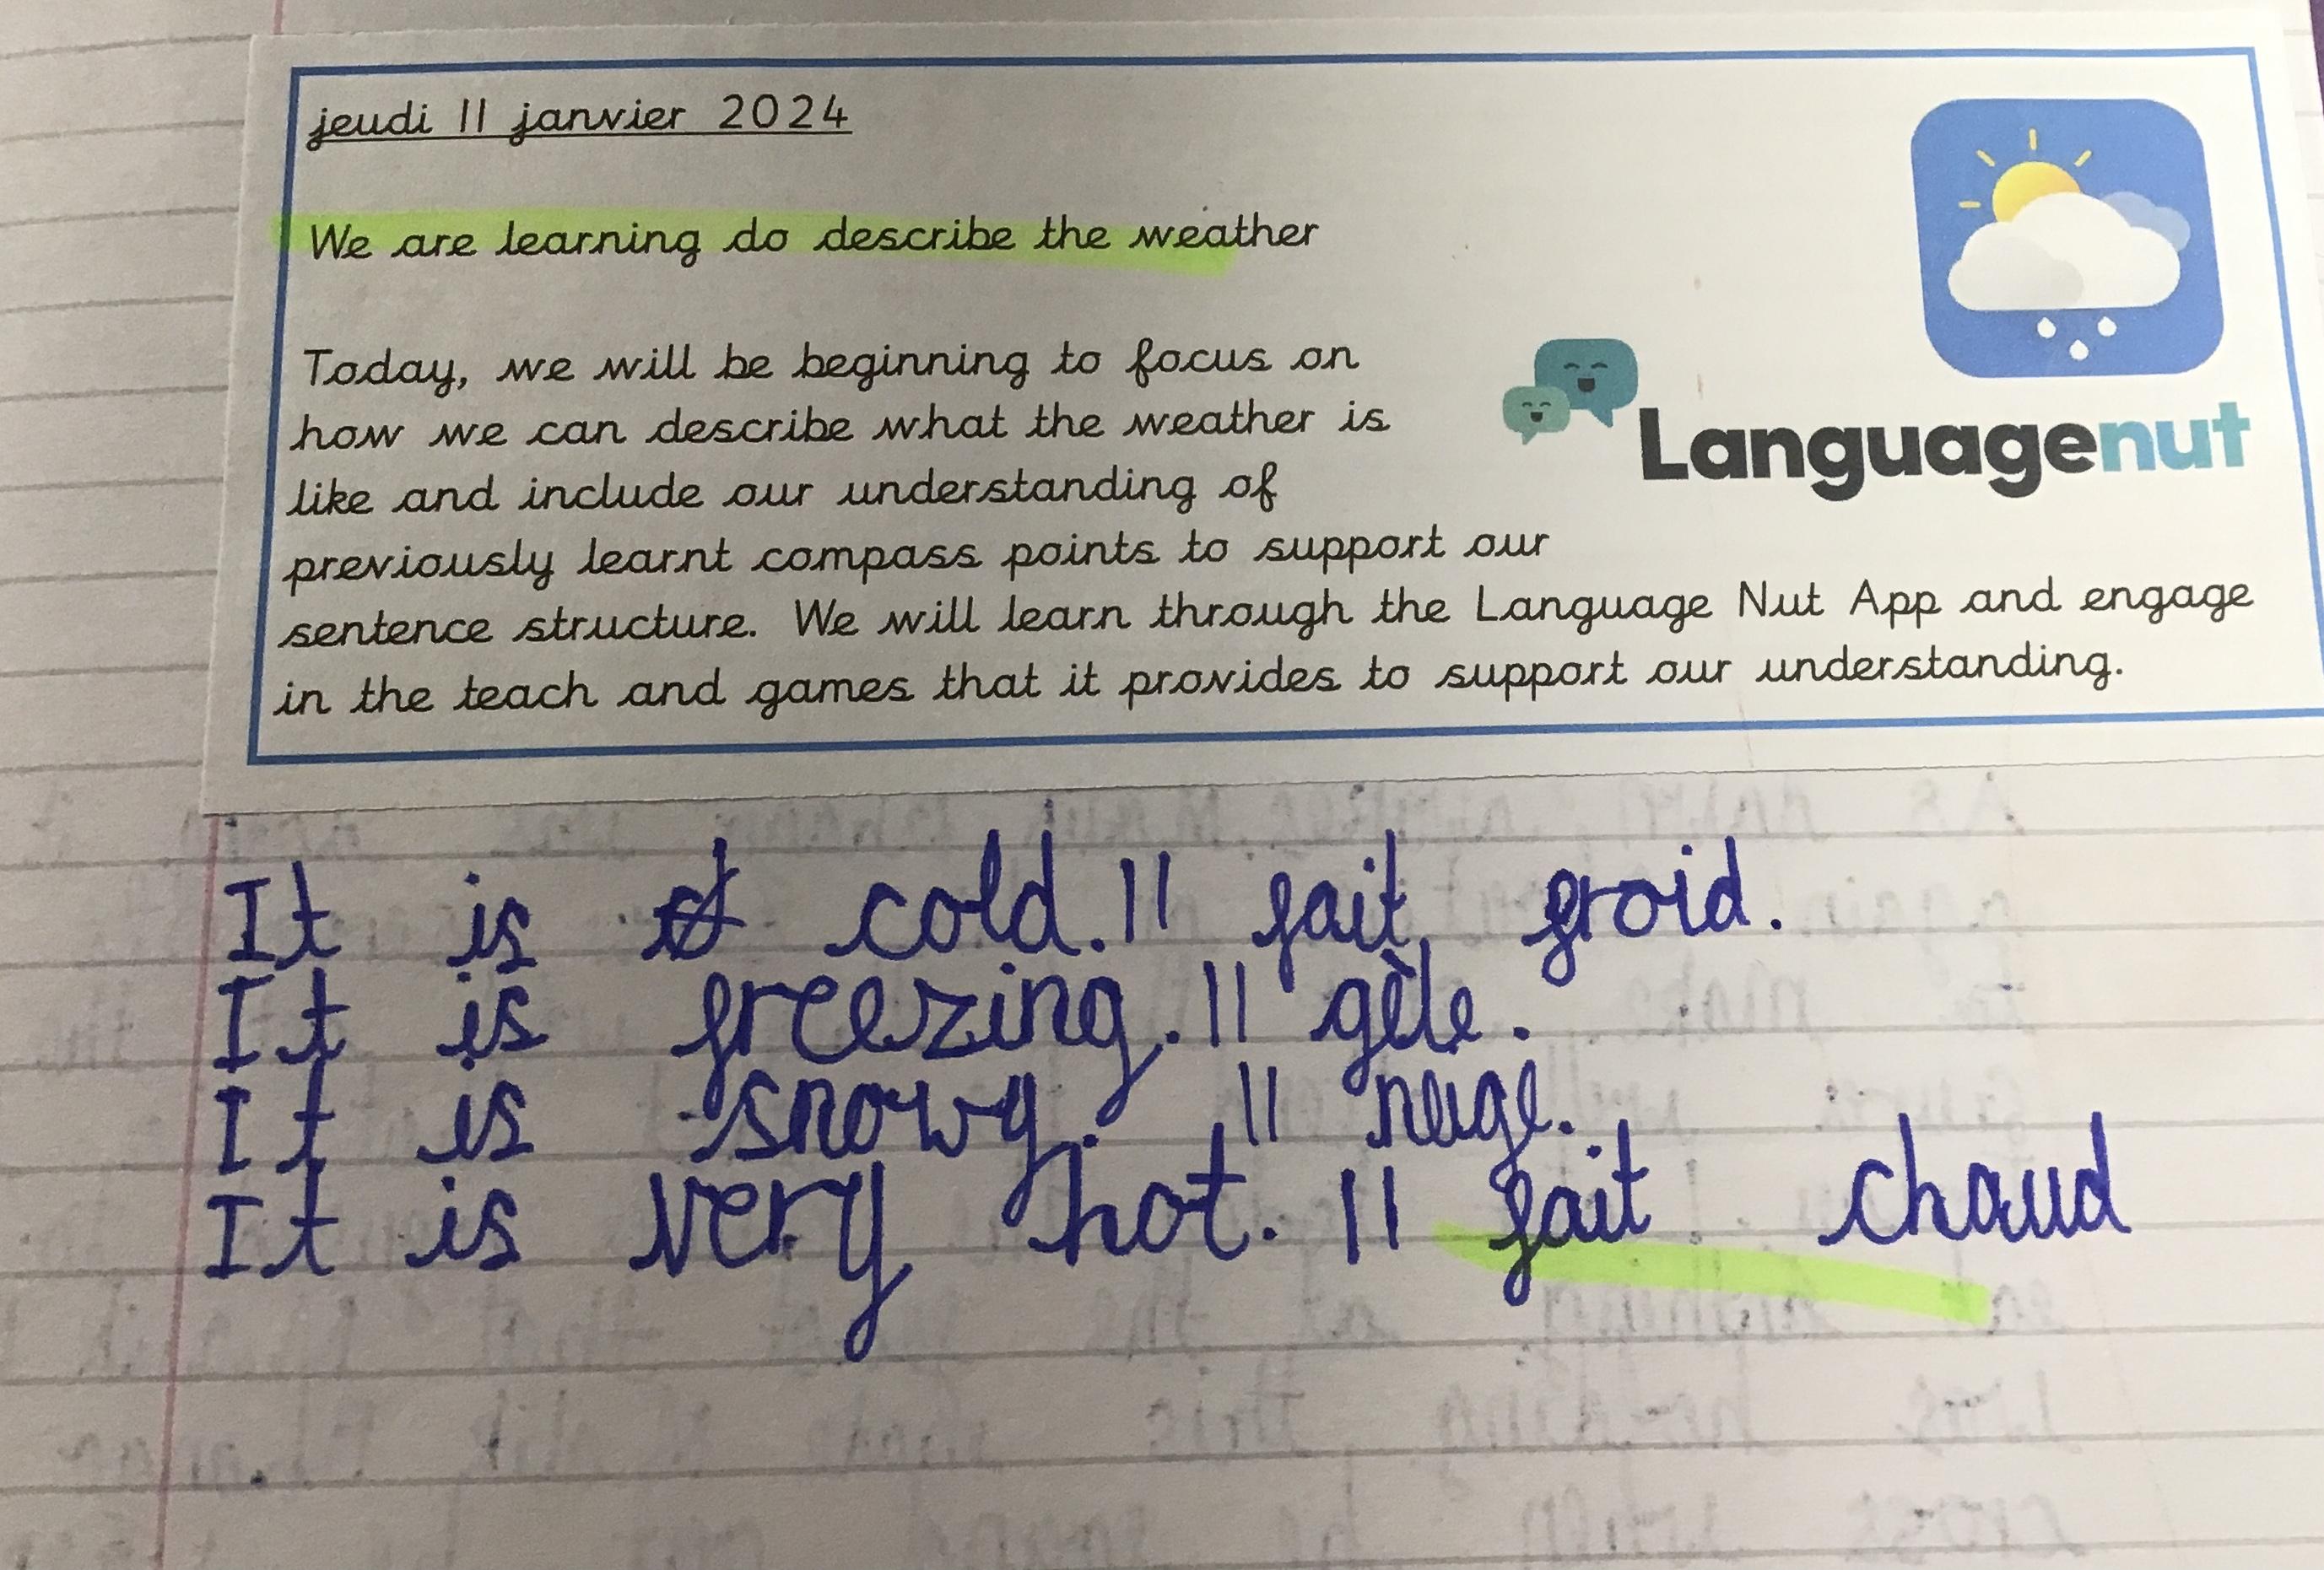 jeudi 11 janvier 2024
We are learning do describe the weather
Today, we will be beginning to focus on
how we can describe what the weather is
like and include our understanding of
previously learnt compass points to support our
sentence structure. We will learn through the Language Nut App and engage
in the teach and games that it provides to support our understanding.
Languagenut
It is cold. Il fait froid.
It is freezing. Il gèle.
It is snowy. Il neige.
It is very hot. Il fait chaud